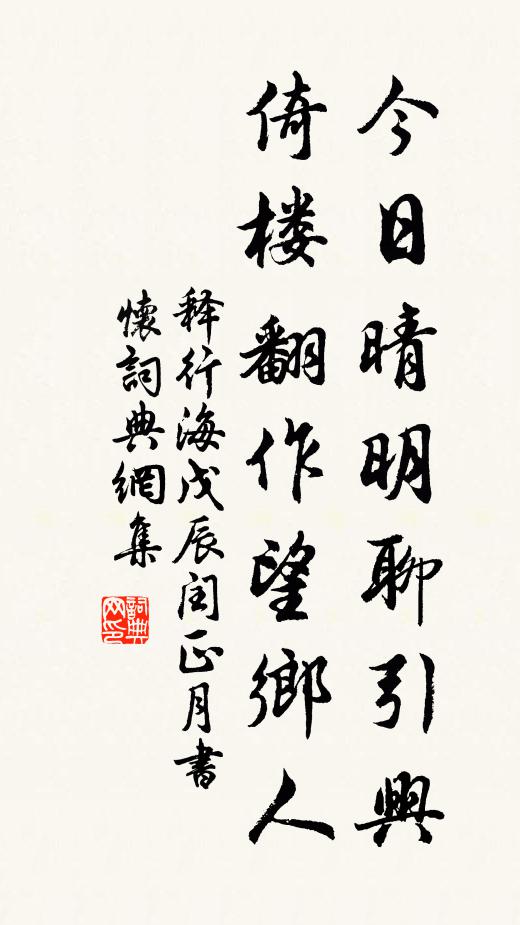 今日晴明聊引興
倚楼翻作望鄉人
释行海戊辰闰正月書
懷詞典網集
詞典
网印